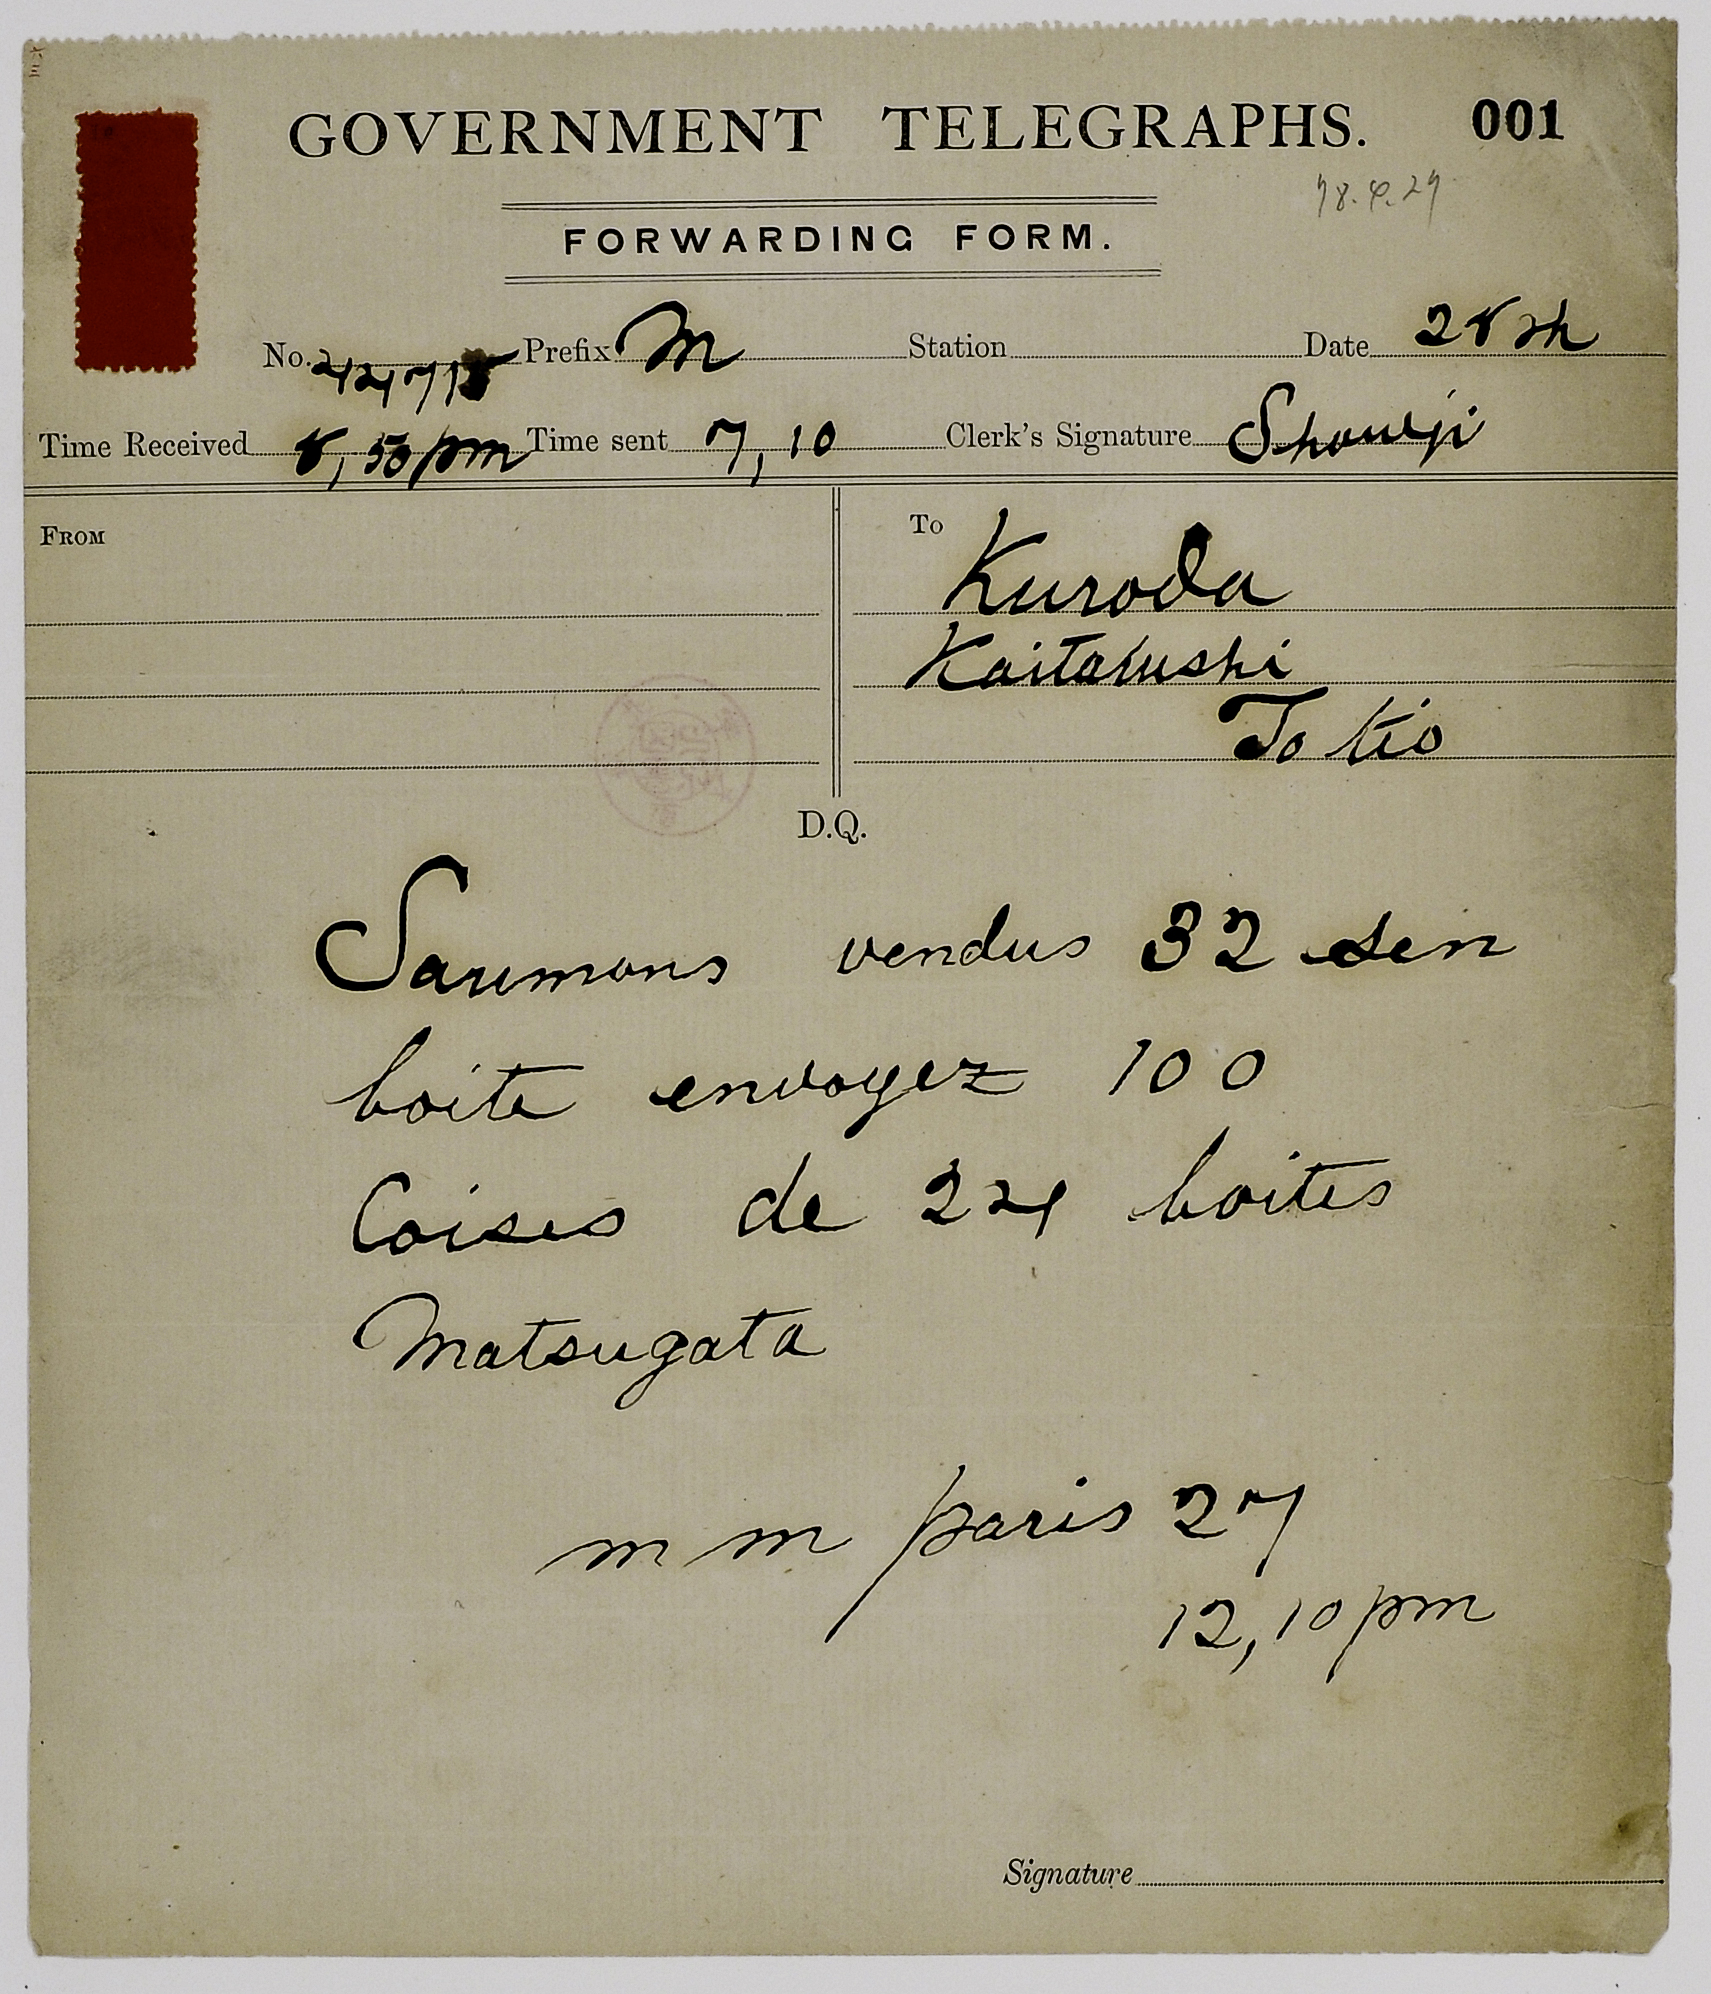 GOVERNMENT TELEGRAPHS. 001
78.4.27
FORWARDING FORM.
No. Prefix M Station Date 28th
Time Received 8,50pm Time sent 7,10 Clerk's Signature Shouji
FROM
To Kuroda
Kaitakushi
To kio
D.Q.
Saumons vendus 32 sen
boite envoyez 100
Coises de 24 boites
Matsugata
m m paris 27
12,10pm
Signature